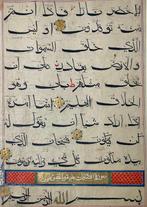 الاخضر نارا فاذا انتم
منه توقدون او ليس
الذي خلق السموات
والارض بقادر على ان
يخلق مثلهم بلى وهو
الخلاق العليم انما امره
اذا اراد شيئا ان يقول له
كن فيكون فسبحان الذي
بيده ملكوت كل شيء واليه
بسم الله الرحمن الرحيم